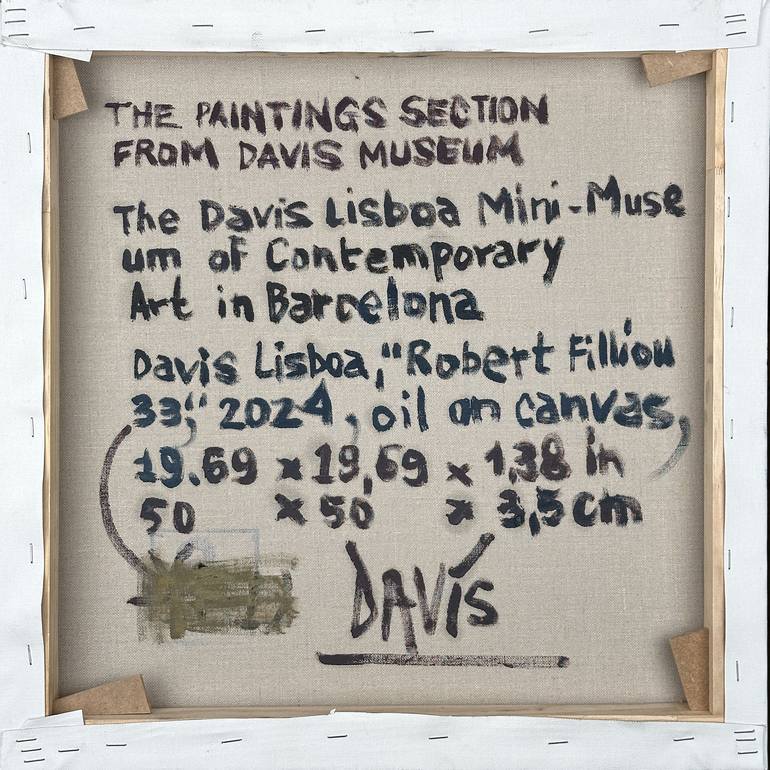 THE PAINTINGS SECTION
FROM DAVIS MUSEUM
The Davis Lisboa Mini-Muse
um of Contemporary
Art in Barcelona
Davis Lisboa, "Robert Filliou
33," 2024, oil on canvas,
19.69 x 19,69 x 1,38 in
50 x 50 x 3,5 cm
DAVÍS